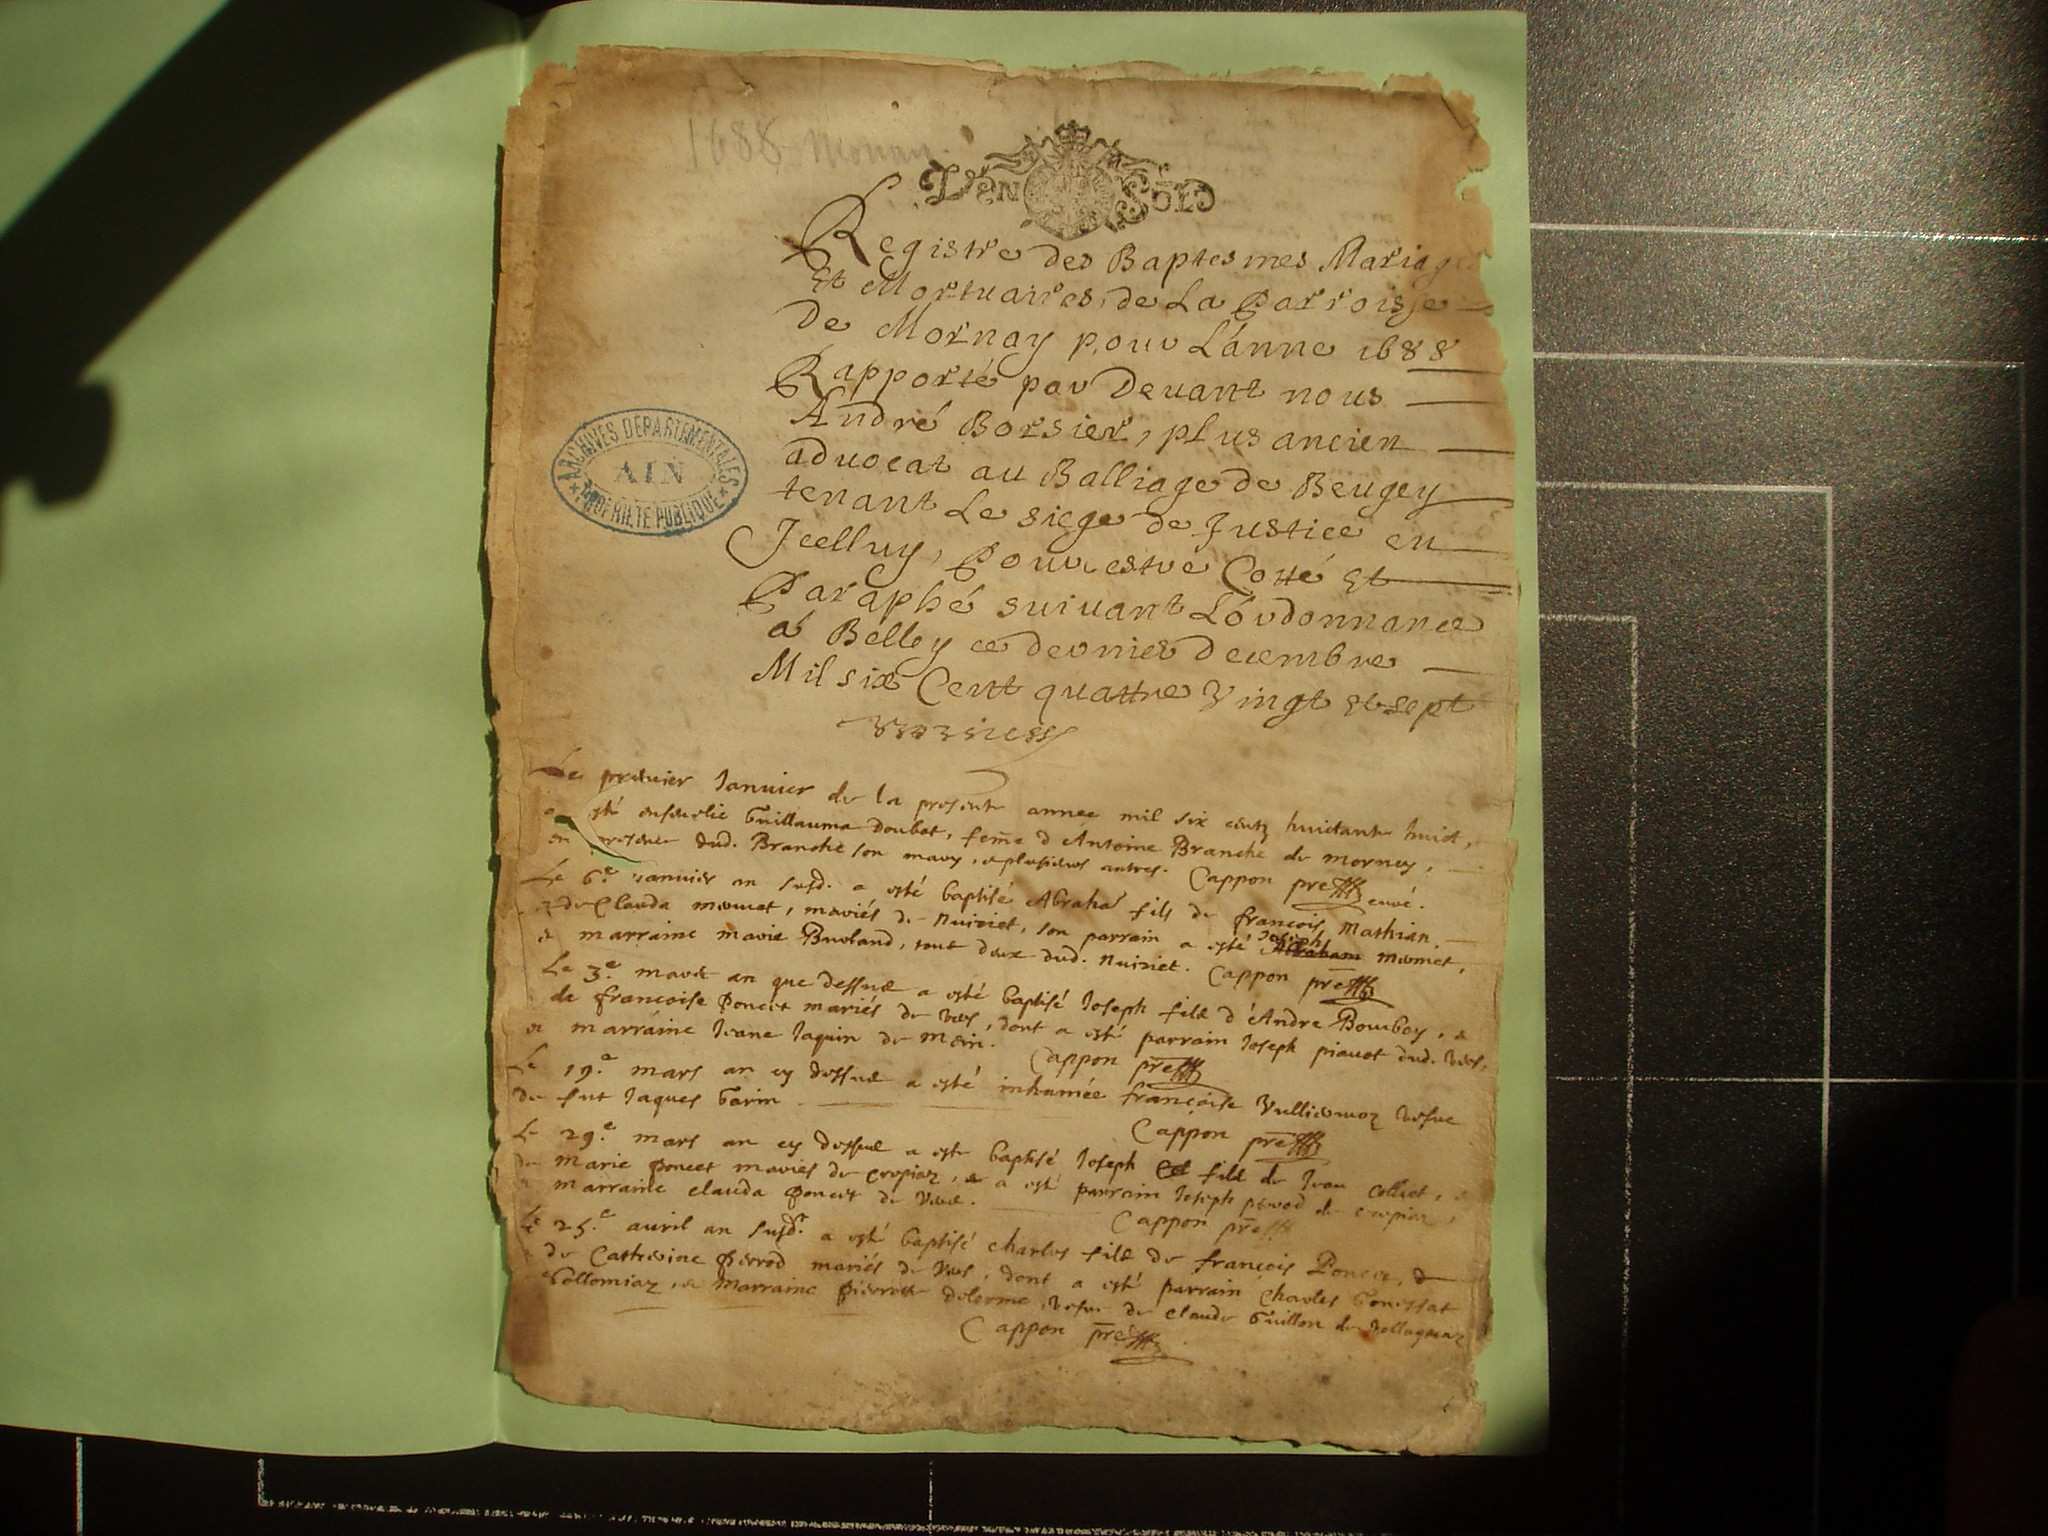 1688 Mornay
UN SOLD
Registre des Baptesmes Mariages
Et Mortuaires de La Parroisse
De Mornay pour L'anne 1688
Rapporté par Devant nous
André Borsier, plus ancien
advocat au Balliage de Beugey
tenant Le siege de Justice en
Icelluy, Pour estre Cotté Et
Paraphé suivant L'ordonnance
á Belley ce dernier decembre
Mil six Cent quattre Vingt et sept
ARCHIVES DEPARTEMENTALES
AIN
PROPRIETE PUBLIQUE
Le premier Janvier de la presente annee mil six centz huictante huict,
a esté ensevelie Guillauma doubat, feme d'Antoine Branche de mornay,
en presence dud. Branche son mary, & plusieurs autres. Cappon pre curé.
Le 6.e Janvier an susd. a esté baptisé Abraha fils de françois Mathian,
& de Clauda momet, mariés de Nuiriet, son parrain a esté Joseph momet,
& marraine marie Buoland, tout deux dud. Nuiriet. Cappon pre
Le 3.e mars an que dessus a esté baptisé Joseph filz d'Andre Bomboy, &
de francoise Poncet mariés de Vers, dont a esté parrain Joseph piavot dud. Vers,
& marraine Jeane Jaquin de Mein. Cappon pre
Le 19.e mars an cy dessus a esté inhumée françoise Vulliermoz Vefve
de fut Jaques Garin. Cappon pre
Le 29.e mars an cy dessus a esté baptisé Joseph filz de Jean Collet, &
de Marie Poncet mariés de Cropiaz, & a esté parrain Joseph perod de Cropiaz,
& marraine clauda Poncet de Vers. Cappon pre
Le 25.e avril an susd. a esté baptisé Charles filz de françois Poncet, &
de Catherine Pierrod mariés de Vers, dont a esté parrain Charles Gonessat
& Marraine Pierrette delorme, Vefve de claude Guillon de
Cappon pré